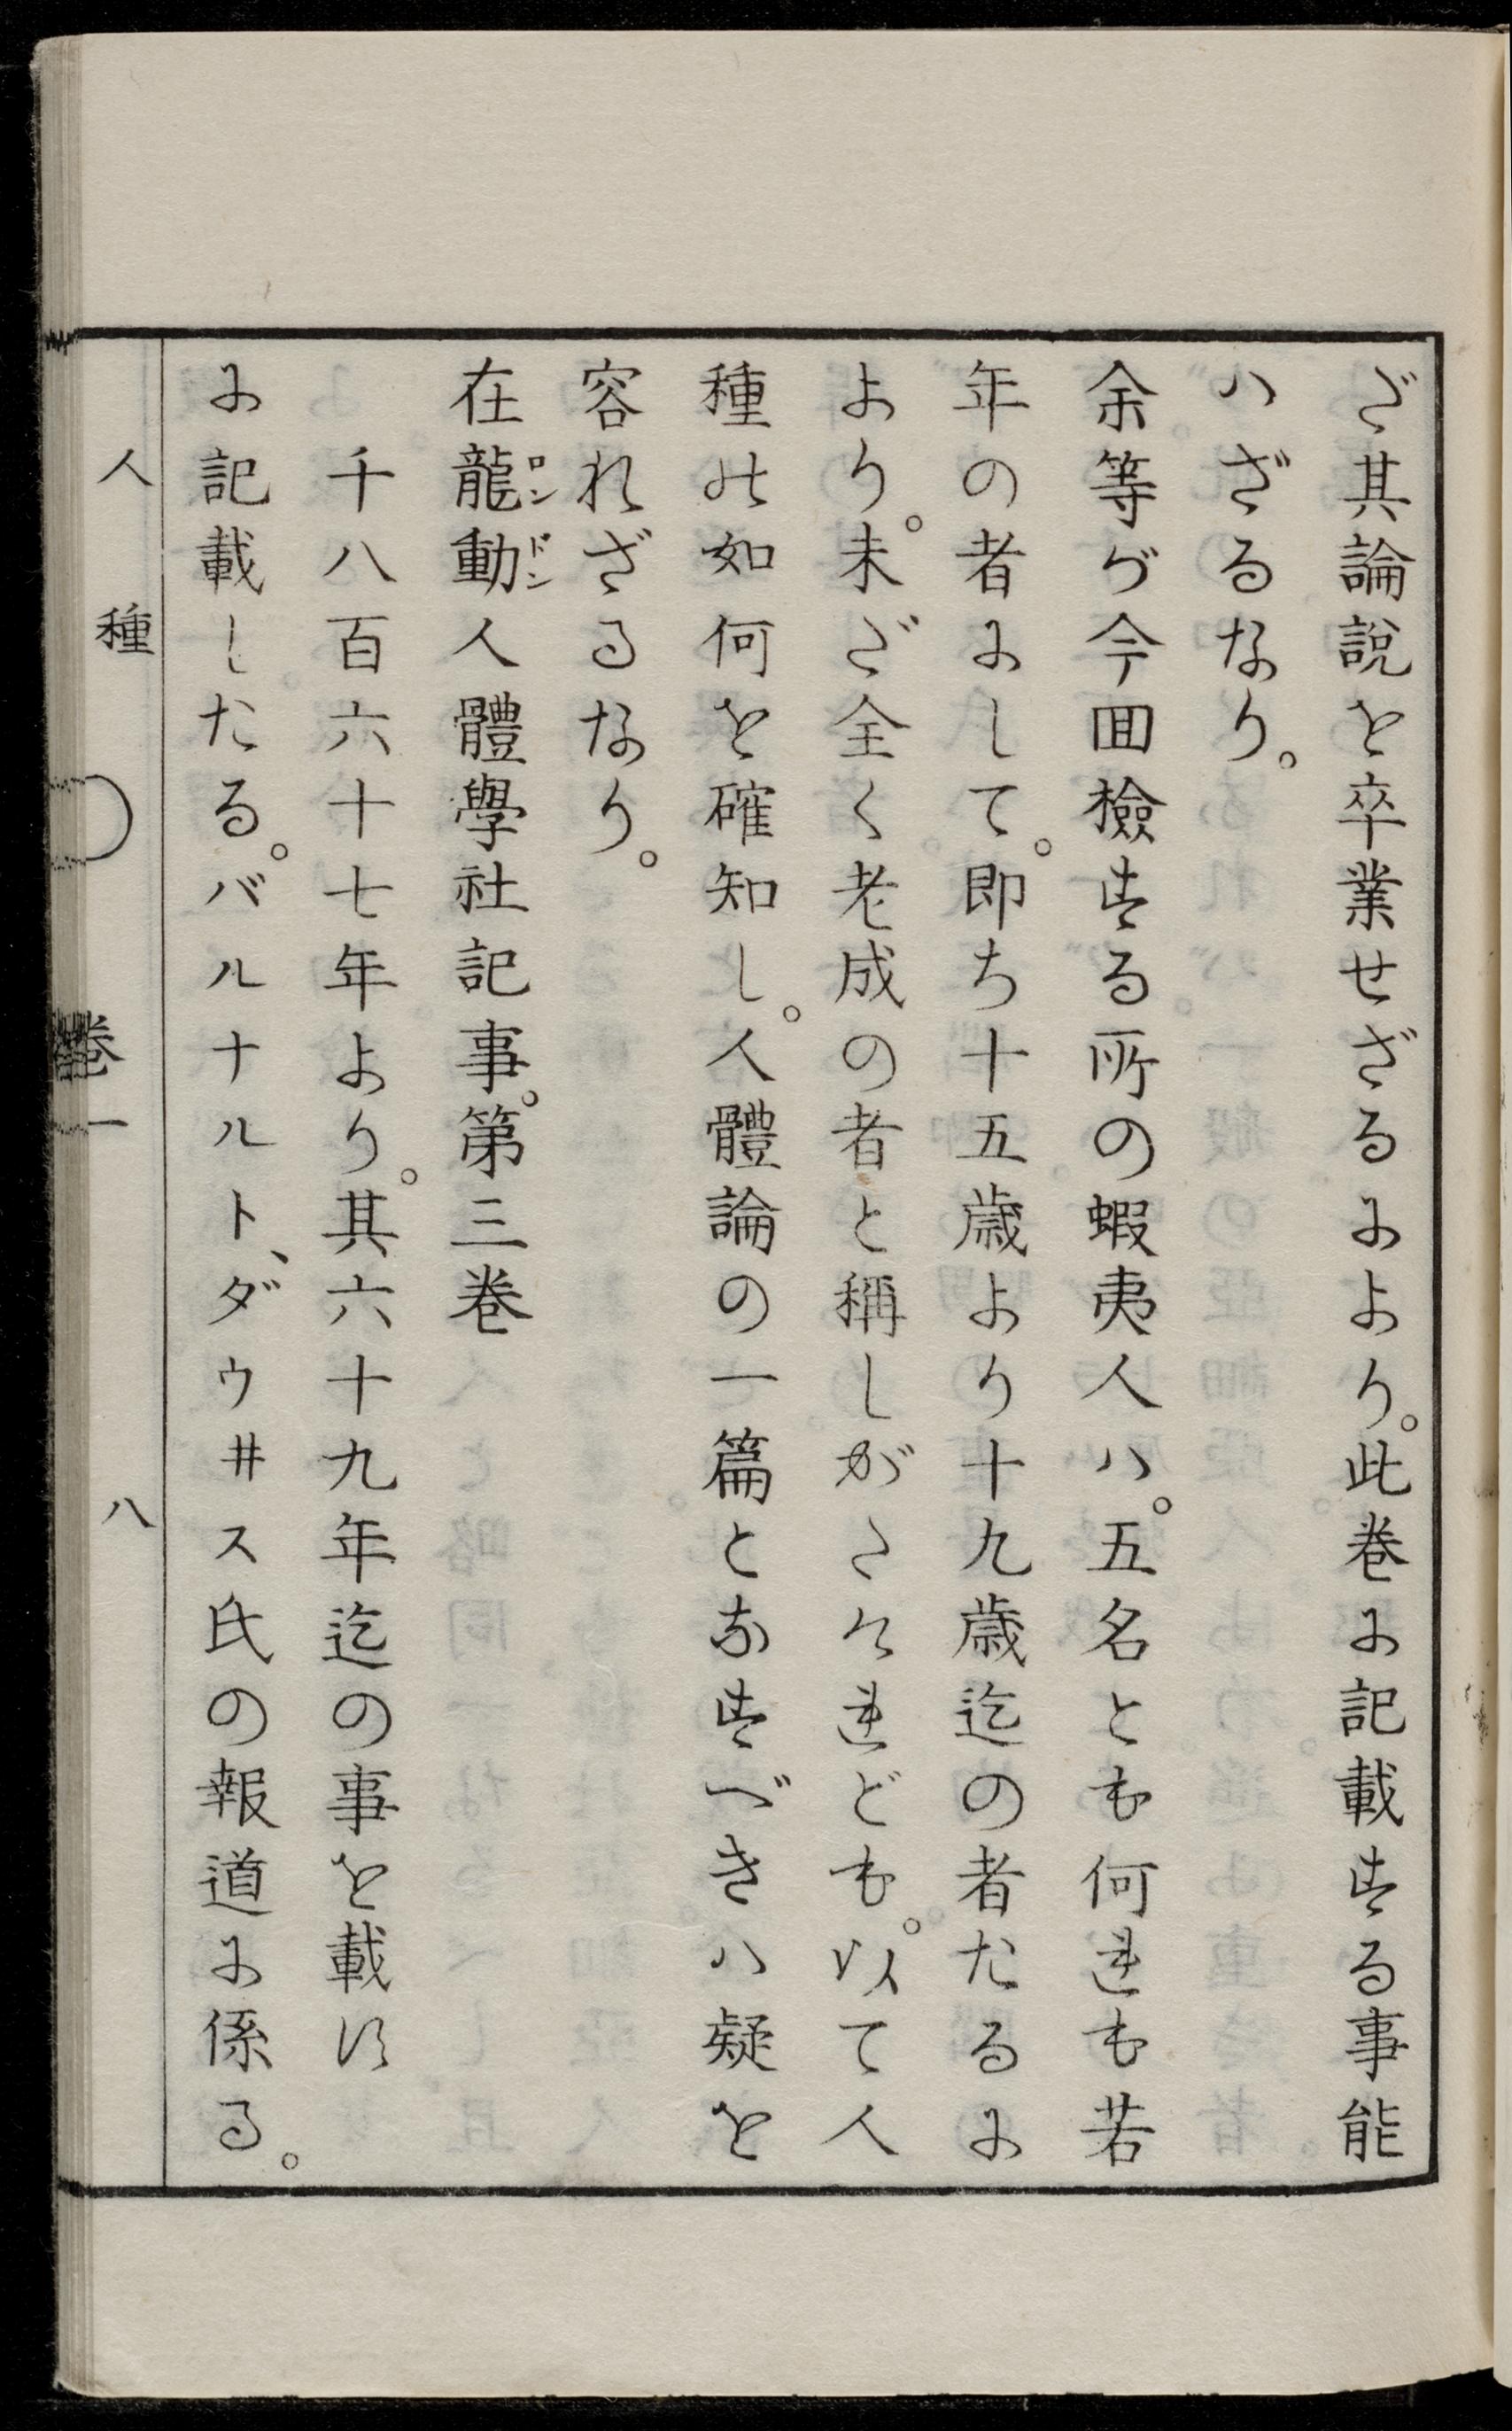 ざ其論説を卒業せざるにより。此巻に記載する事能
ハざるなり。
余等が今囬檢する所の蝦夷人ハ。五名とも何れも若
年の者にして。即ち十五歳より十九歳迄の者たるに
より。未ざ全く老成の者と稱しがたけれども。以て人
種の如何を確知し。人體論の一篇となすべきハ疑を
容れざるなり。
在龍動人體學社記事。第三巻
ロンドン
千八百六十七年より。其六十九年迄の事を載す
に記載したる。バルナルト、ダウ井ス氏の報道に係る。
人種 巻一 八